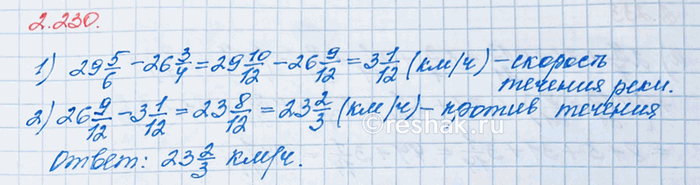 2.230.
1) 29 5/6 - 26 3/4 = 29 10/12 - 26 9/12 = 3 1/12 (км/ч) - скорость
течения реки.
2) 26 9/12 - 3 1/12 = 23 8/12 = 23 2/3 (км/ч) - против течения
©reshak.ru
Ответ: 23 2/3 км/ч.